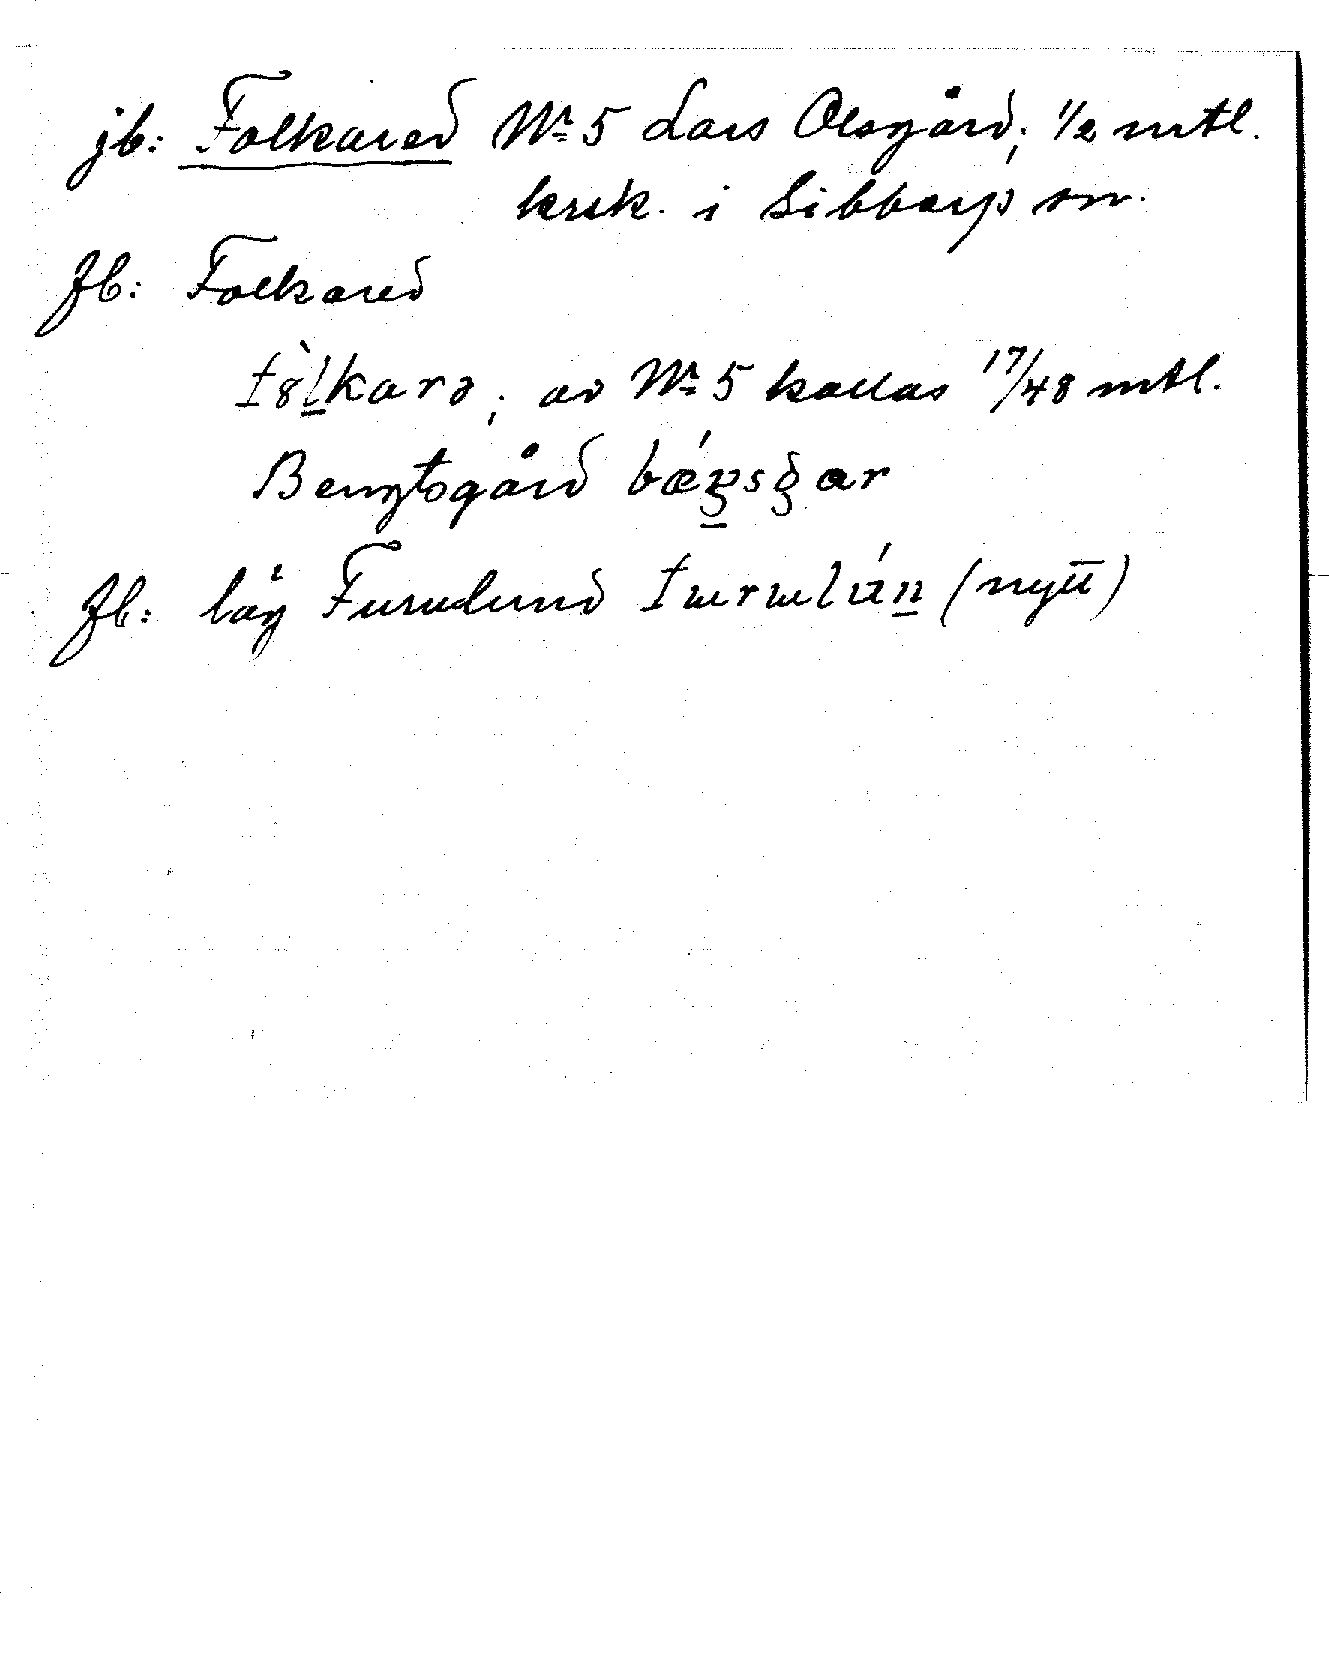 jb: Folkared Nr 5 Lars Olsgård; 1/2 mtl.
krsk. i Sibbarp sn.
Jb: Folkared
f8̀l̲karə; av Nr 5 kallas 17/48 mtl.
Bengtsgård
Jb: låg Furulund (nytt)